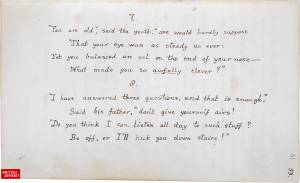 7
"You are old", said the youth, "one would hardly suppose
That your eye was as steady as ever:
Yet you balanced an eel on the end of your nose—
What made you so awfully clever?"
8.
"I have answered three questions, and that is enough,"
Said his father, "don't give yourself airs!
Do you think I can listen all day to such stuff?
Be off, or I'll kick you down stairs!"
BRITISH
LIBRARY